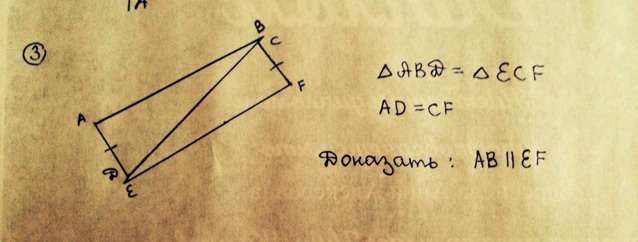 1A
3
B
C
F
A
D
E
△ABD = △ECF
AD = CF
Доказать: AB || EF